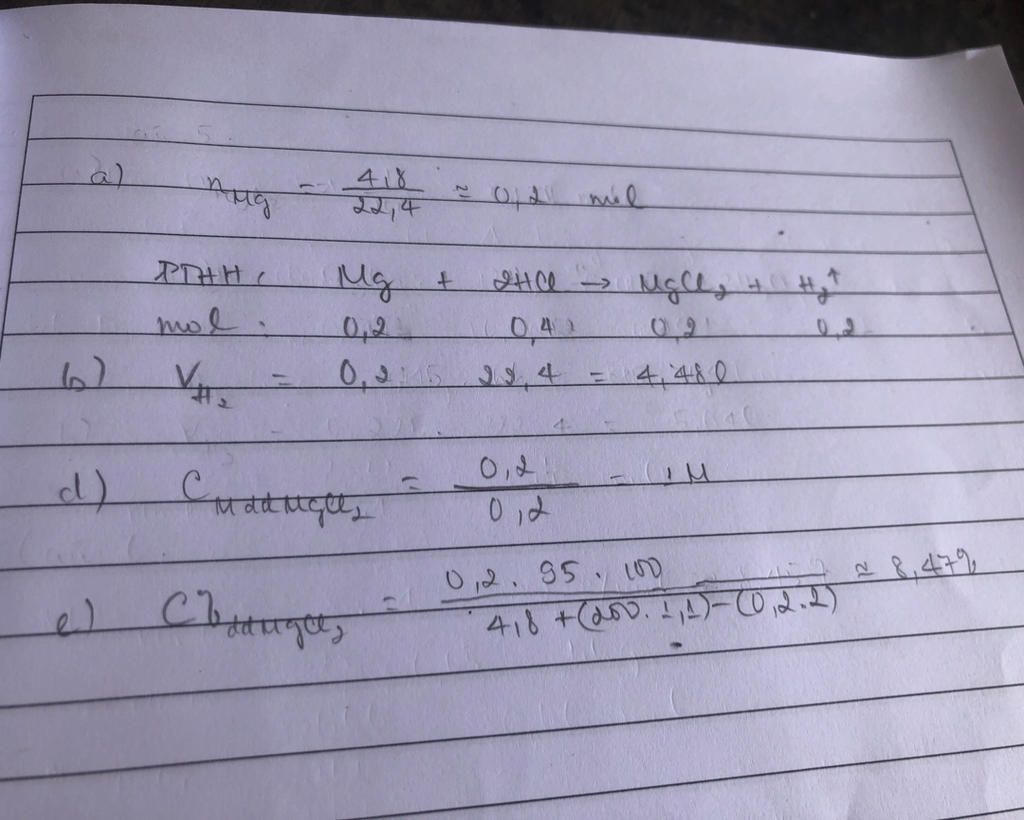 a) nMg = 4,8 / 22,4 ≈ 0,2 mol
PTHH: Mg + 2HCl → MgCl₂ + H₂↑
mol: 0,2 0,4 0,2 0,2
b) V_H₂ = 0,2 22,4 = 4,48 l
d) C_M dd MgCl₂ = 0,2 / 0,2 = 1M
e) C%_dd MgCl₂ = 0,2 . 95 . 100 / 4,8 + (200 . 1,1) - (0,2 . 2) ≈ 8,47%